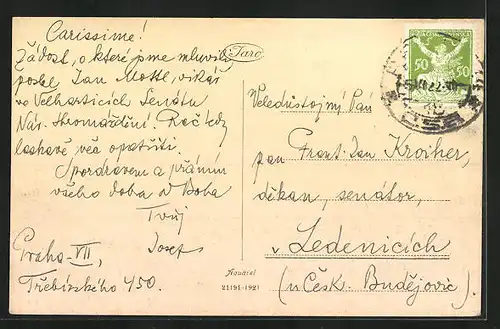 Carissime!
Žádost, o které jsme mluvili,
poslal Jan Mottl, vikář
ve Velharticích Senátu
Nár. Shromáždění. Rač tedy
laskavě věc opatřiti.
S pozdravem a přáním
všeho dobra od Boha
Tvůj
Josef
Praha-VII,
Třebízského 450.
Taro
Aquarel
21191-1921
POŠTA ČESKOSLOVENSKÁ
50 50
Veledůstojný Pán
pan Front. Jan Kroiher,
děkan, senátor,
v Ledenicích
(u Česk. Budějovic)